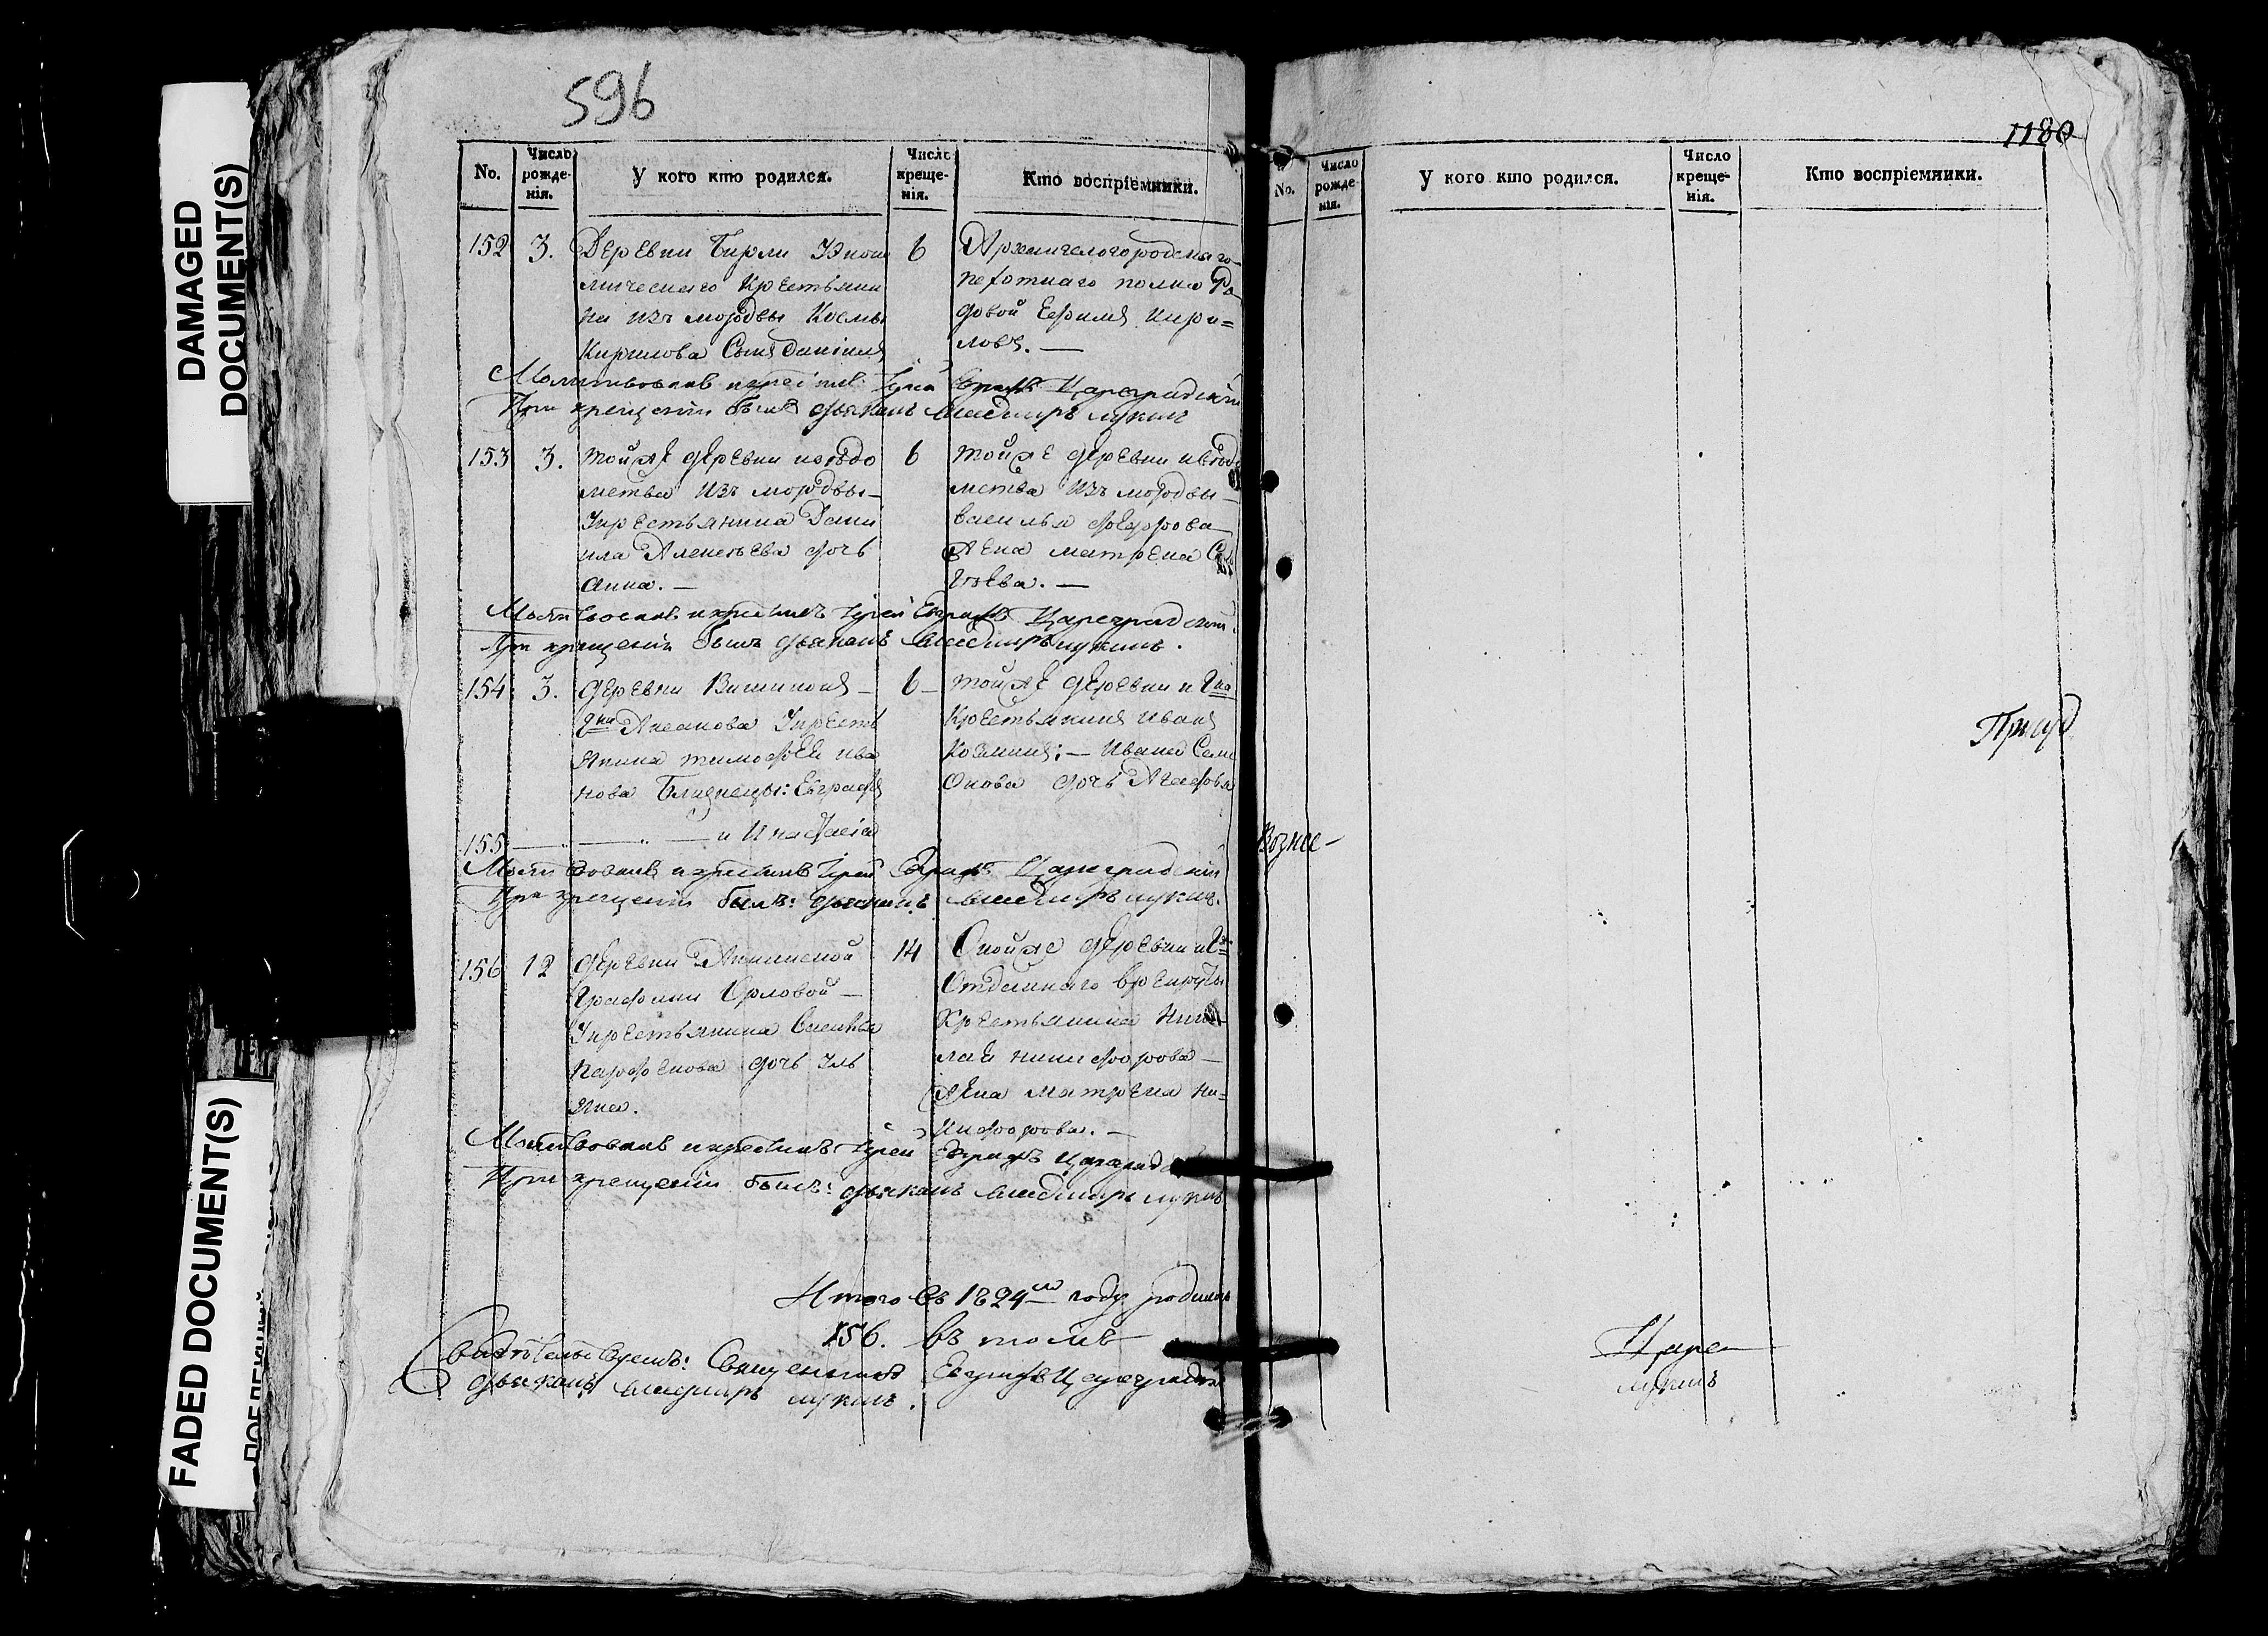 DAMAGED
DOCUMENT(S)
FADED DOCUMENT(S)
596
No.
Число рожде-нія.
У кого кто родился.
Число креще-нія.
Кто воспріемники.
152 3. Деревни Бирли Экономическаго Крестьянина изъ мордвы Косьмы Кирилова Сынъ Даніилъ 6 Архангелогородскаго пехотнаго полка Рядовой Ефимъ Кириловъ. —
Молитвовалъ и крестилъ Іерей Евграфъ Цареградскій
При крещеніи былъ дьяконъ Владимиръ Лукинъ
153 3. Той же деревни и ведомства изъ мордвы Крестьянина Данила Алексеева дочь Анна. — 6 Той же деревни и ведомства изъ мордвы Василья Федорова жена Матрена
Молитвовалъ и крестилъ Іерей Евграфъ Цареградскій
При крещеніи былъ дьяконъ Владимиръ Лукинъ.
154 3. деревни г-на Аксакова Крестьянина Тимофея Иванова Близнецы: Евграфъ 6 Той же деревни и г-на Крестьянинъ Иванъ Козминъ; — Ивана Семионова дочь Агафья
155 — и Анастасія
Молитвовалъ и крестилъ Іерей Евграфъ Цареградскій
При крещеніи былъ: дьяконъ Владимиръ Лукинъ.
156 12 деревни Графини Орловой Крестьянина Василья Парфенова дочь Ульяна. 14 Той же деревни и г-жи Отданнаго в рекруты Крестьянина Николая Никифорова жена Матрена Никифорова. —
Молитвовалъ и крестилъ Іерей Евграфъ Цареград
При крещеніи былъ: дьяконъ Владимиръ Лукинъ
Итого въ 1824мъ году родилось
156. въ томъ
Свидетельствуемъ: Священникъ Евграфъ Цареградскій
дьяконъ Владимиръ Лукинъ.
1180
No.
Число рожде-нія.
У кого кто родился.
Число креще-нія.
Кто воспріемники.
Вознес-
Царе-
Лукинъ